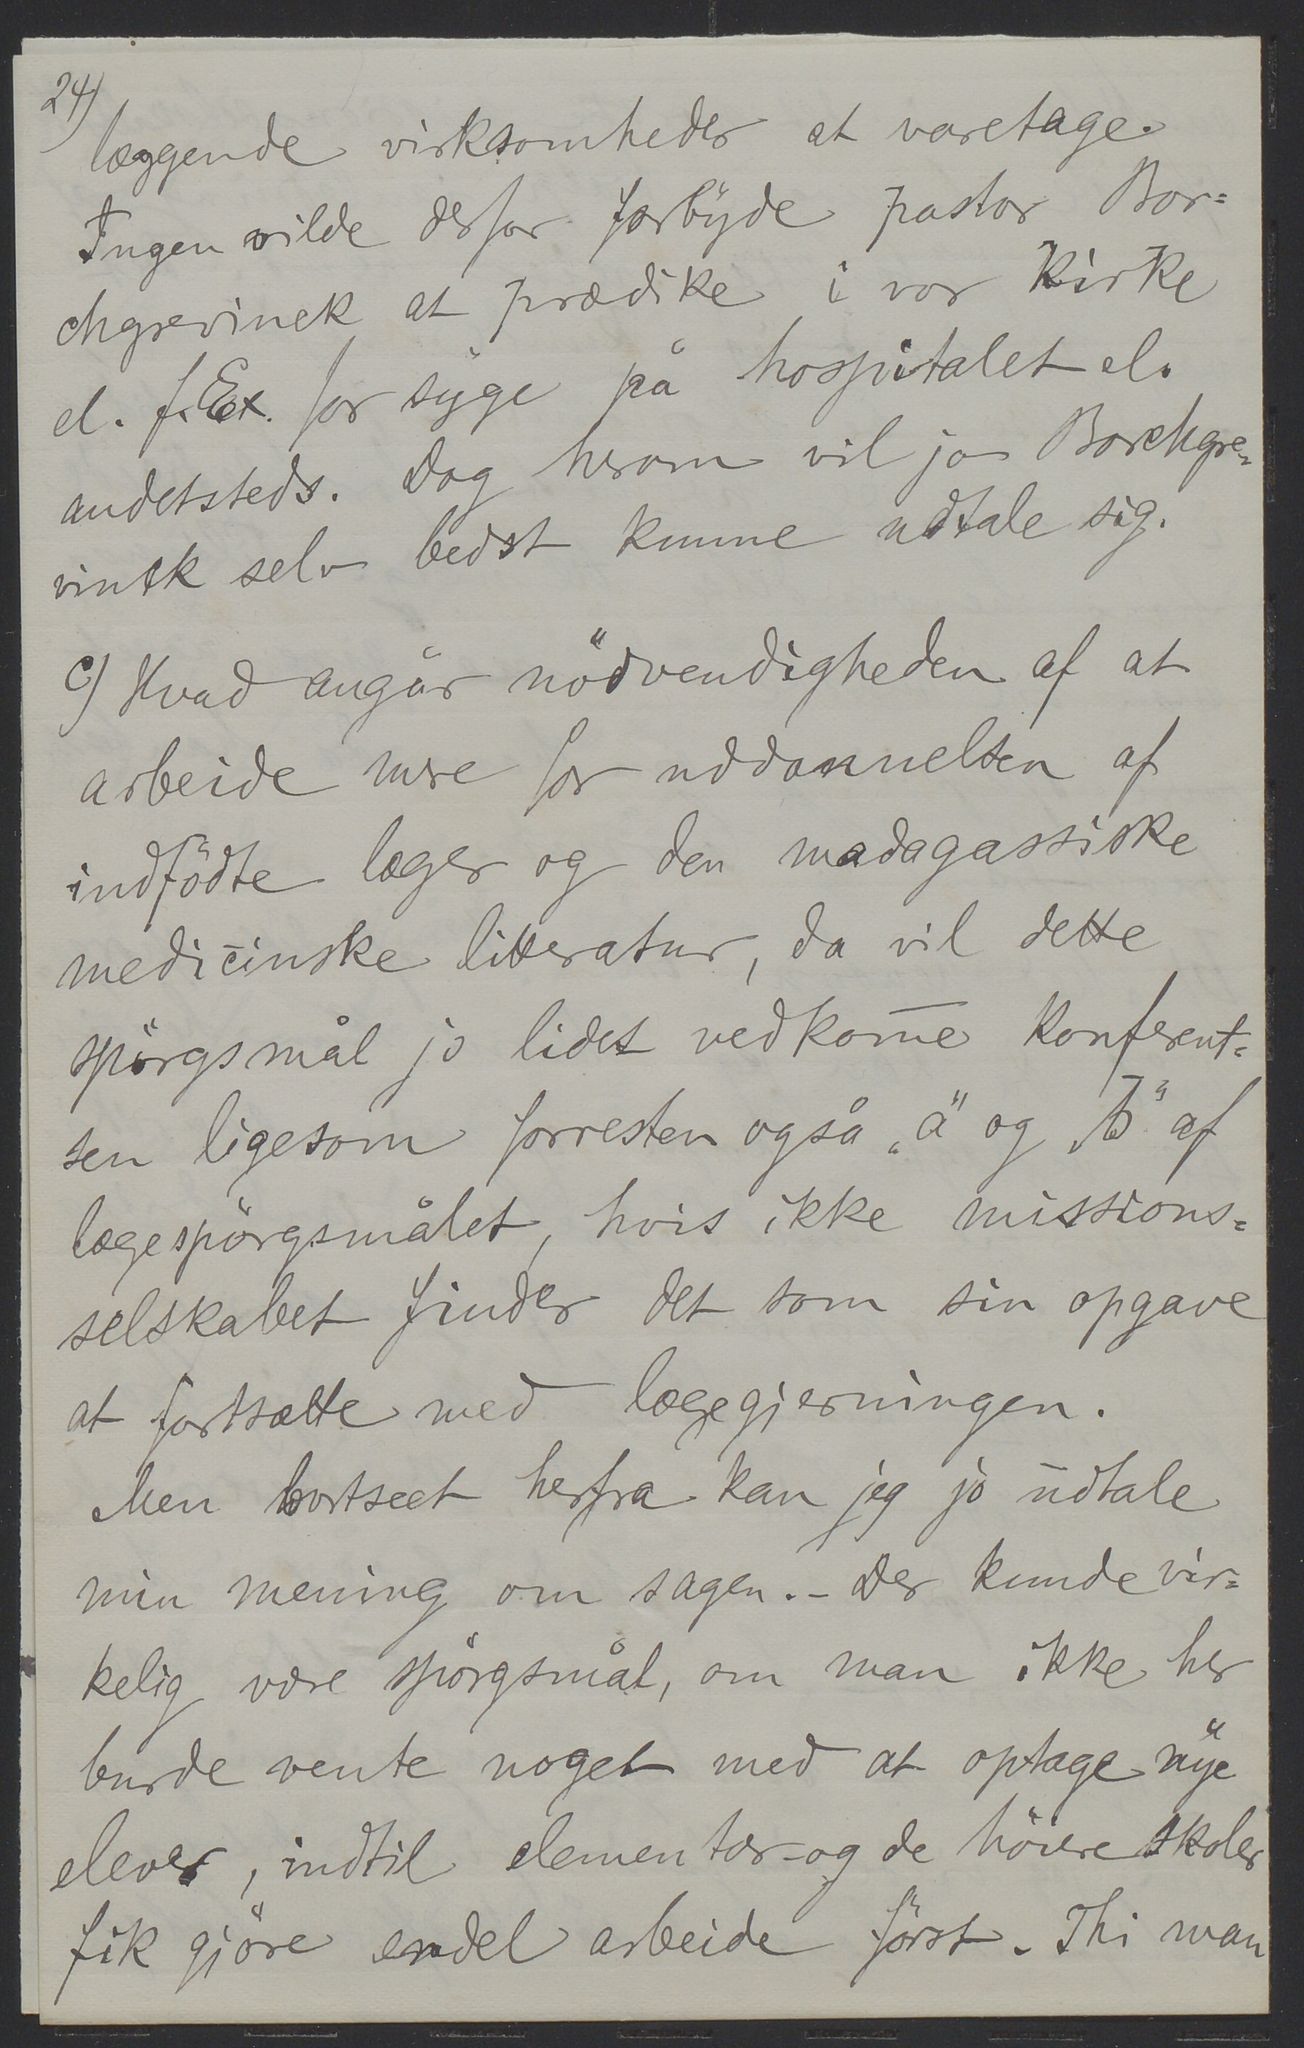 24)
læggende virksomheder at varetage.
Ingen vilde derfor forbyde pastor Bor=
chgrevinck at prædike i vor kirke
el. f. Ex. for syge på hospitalet el.
andetsteds. Dog herom vil jo Borchgre=
vinck selv bedst kunne udtale sig.
c) Hvad angår nödvendigheden af at
arbeide mere for uddannelsen af
indfödte læger og den madagassiske
medicinske litteratur, da vil dette
spörgsmål jo lidet vedkom̄e konferent=
sen ligesom forresten også „a" og „b" af
lægespörgsmålet, hvis ikke missions=
selskabet finder det som sin opgave
at fortsætte med lægegjerningen.
Men bortseet herfra kan jeg jo udtale
min mening om sagen. – Der kunde vir=
kelig være spörgsmål, om man ikke her
burde vente noget med at optage nye
elever, indtil elementær- og de höiere skoler
fik gjöre endel arbeide först. Thi man